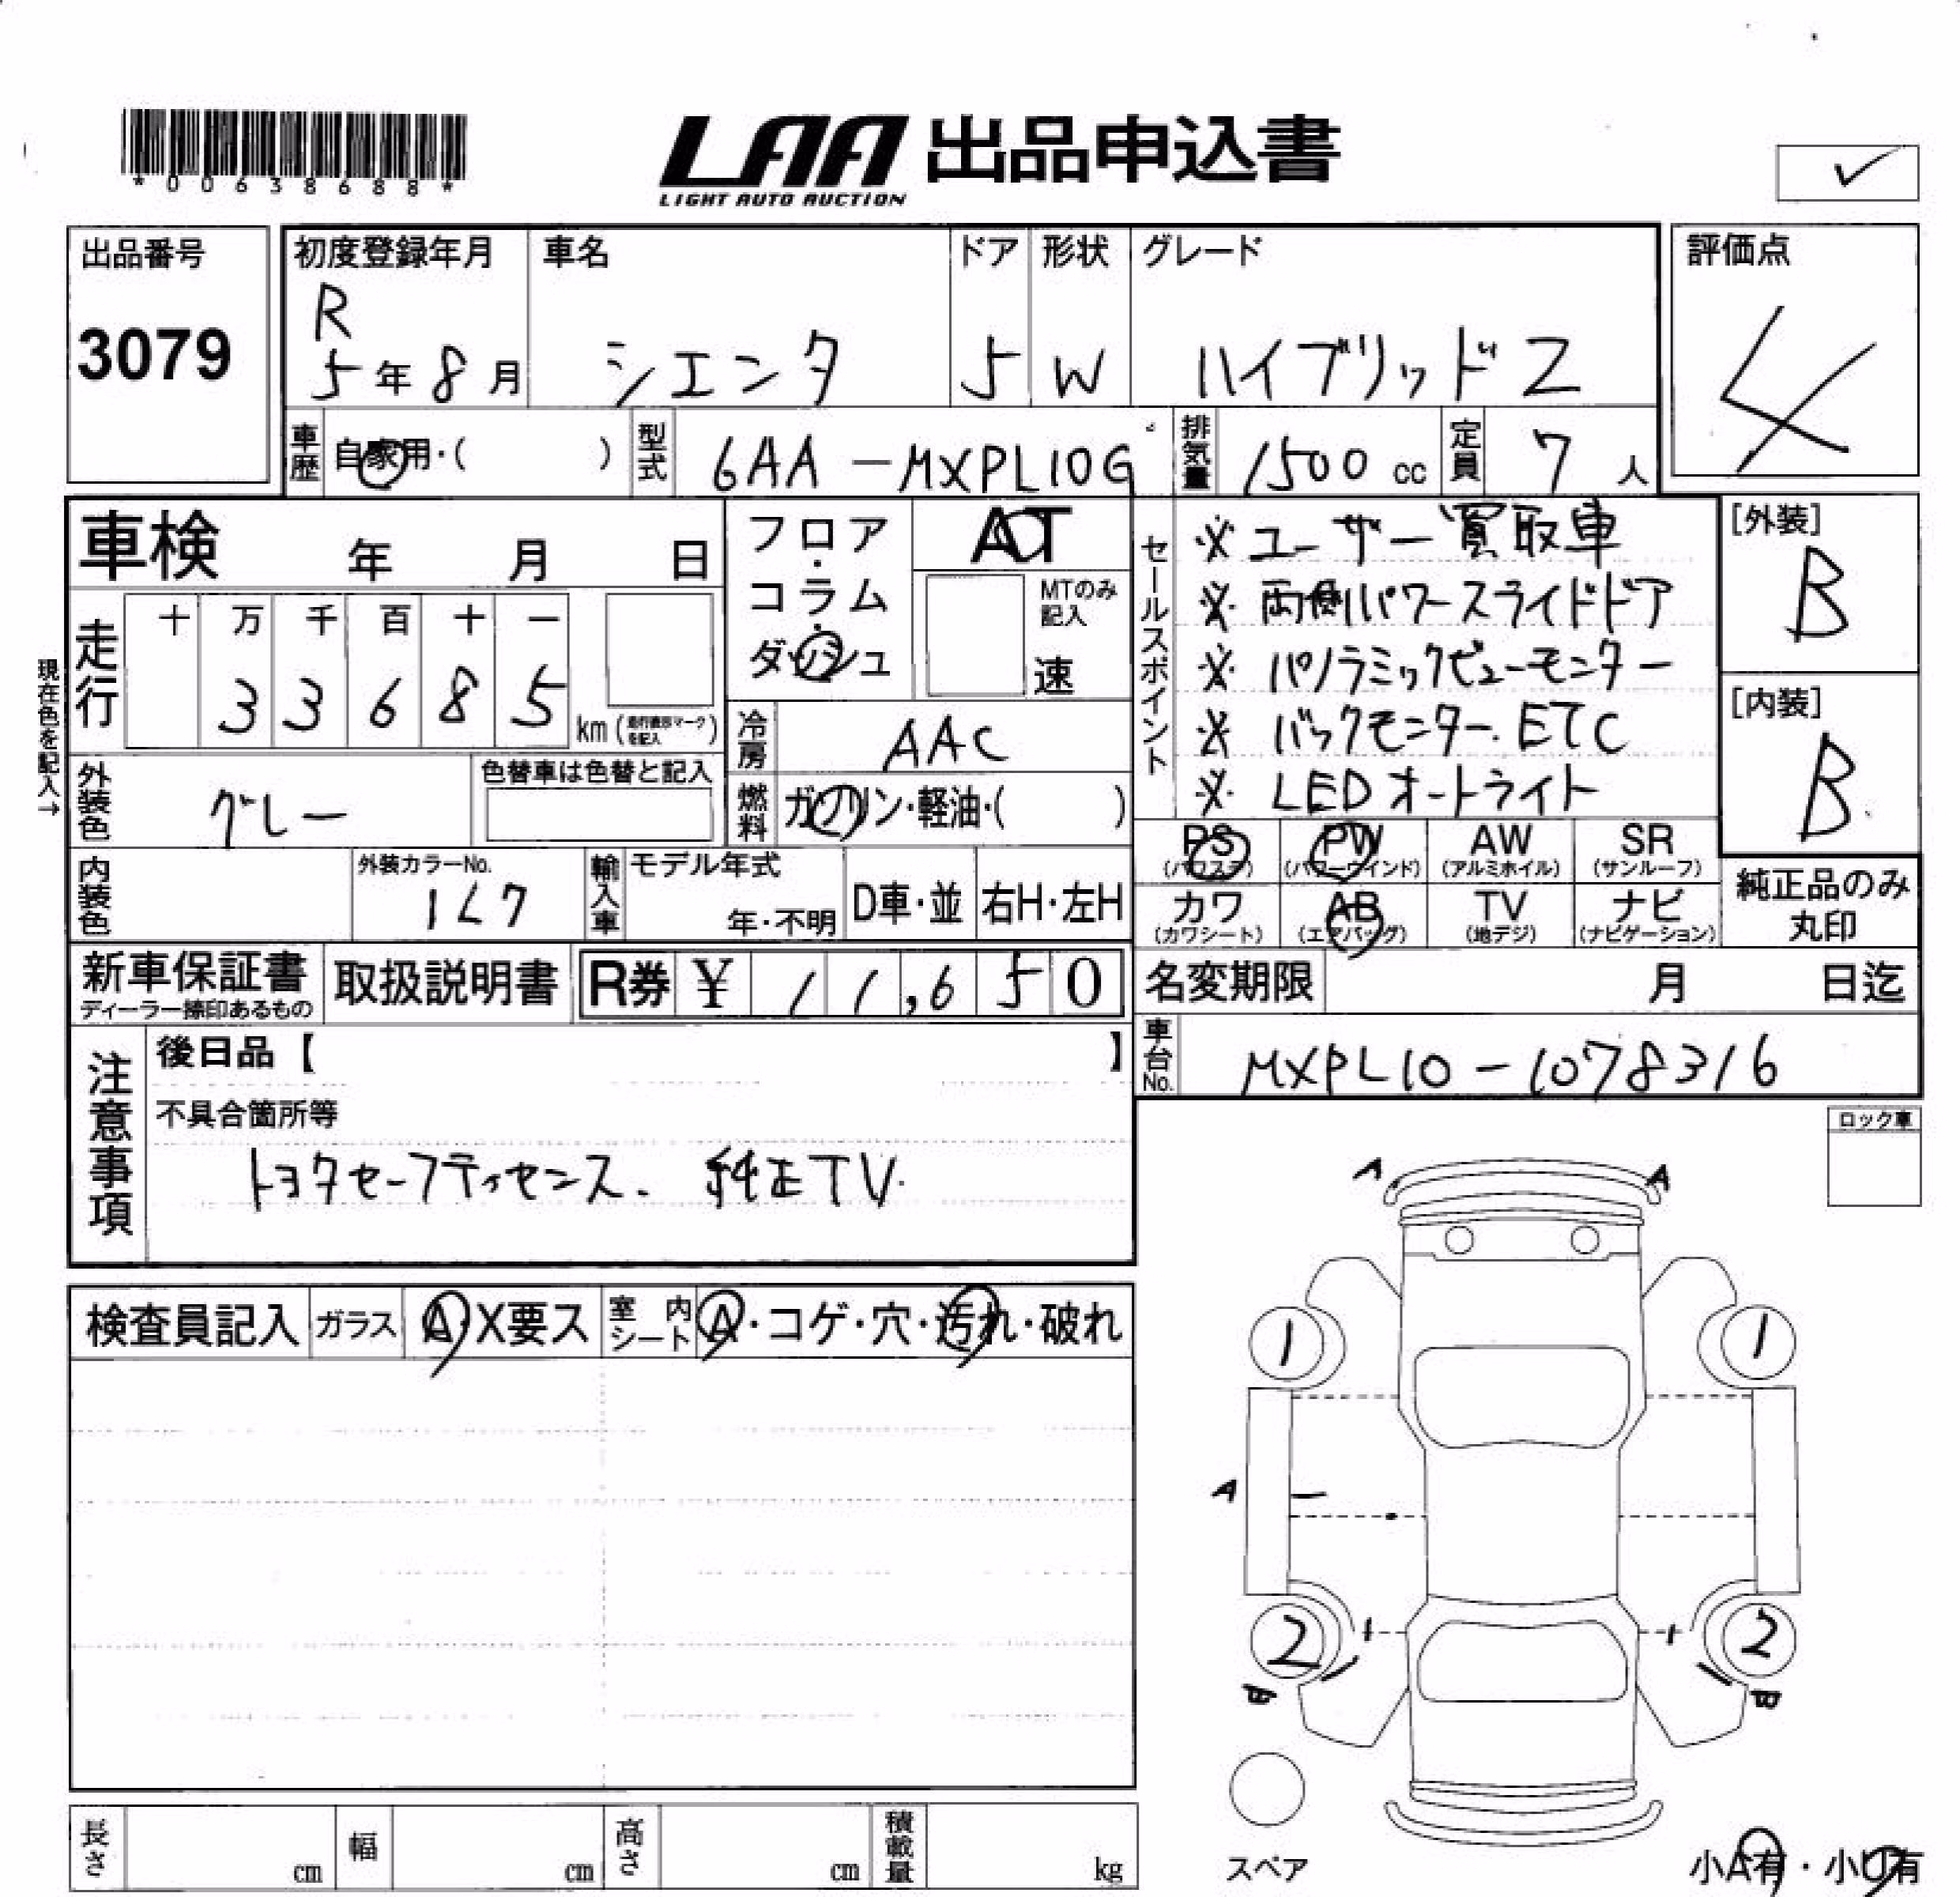 *00638688*
LAA 出品申込書
LIGHT AUTO AUCTION
✓
出品番号 3079
初度登録年月 R 5年8月
車名 シエンタ
ドア 5
形状 W
グレード ハイブリッドZ
評価点 4
車歴 自家用・( )
型式 6AA-MXPL10G
排気量 1500 cc
定員 7 人
車検 年 月 日
フロア・コラム・ダッシュ
AT
MTのみ記入 速
セールスポイント
※ユーザー買取車
※両側パワースライドドア
※パノラミックビューモニター
※バックモニター.ETC
※LEDオートライト
[外装] B
[内装] B
現在色を記入→
走行 十 万 千 百 十 一
3 3 6 8 5 km
冷房 AAC
外装色 グレー
色替車は色替と記入
燃料 ガソリン・軽油・( )
内装色
外装カラーNo. 1L7
輸入車 モデル年式 年・不明
D車・並
右H・左H
PS (パワステ)
PW (パワーウインド)
AW (アルミホイル)
SR (サンルーフ)
カワ (カワシート)
AB (エアバッグ)
TV (地デジ)
ナビ (ナビゲーション)
純正品のみ丸印
新車保証書
ディーラー捺印あるもの
取扱説明書
R券 ¥ 11,650
名変期限 月 日迄
車台No. MXPL10-1078316
注意事項
後日品【 】
不具合箇所等
トヨタセーフティセンス. 純正TV.
ロック車
検査員記入
ガラス A・X要ス
室内シート A・コゲ・穴・汚れ・破れ
A A
1 1
A
2 2
B B
スペア
小A有・小U有
長さ cm
幅 cm
高さ cm
積載量 kg